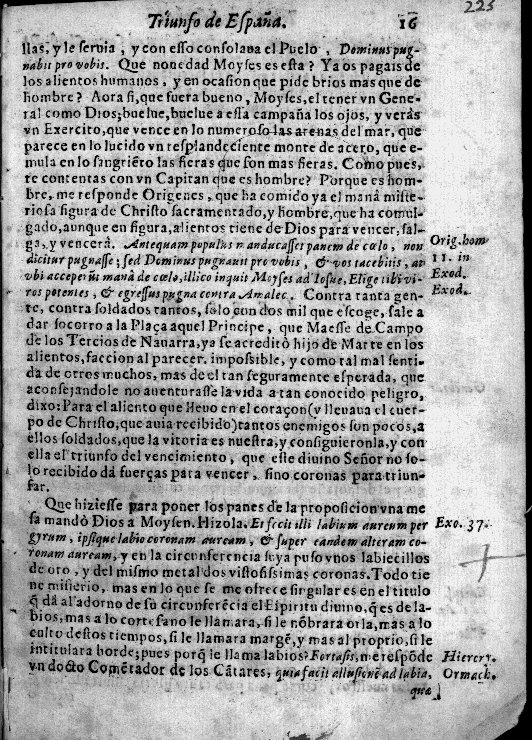 223
Triunfo de España. 16
llas, y le servia, y con esso consolava el Puelo, Dominus pug-
nabit pro vobis. Que novedad Moyses es esta? Ya os pagais de
los alientos humanos, y en ocasion que pide brios mas que de
hombre? Aora si, que fuera bueno, Moyses, el tener vn Gene-
ral como Dios; buelue, buelue a essa campaña los ojos, y veràs
vn Exercito, que vence en lo numeroso las arenas del mar, que
parece en lo lucido vn resplandeciente monte de acero, que e-
mula en lo sangriẽto las fieras que son mas fieras. Como pues,
te contentas con vn Capitan que es hombre? Porque es hom-
bre, me responde Origenes, que ha comido ya el manà miste-
riosa figura de Christo sacramentado, y hombre, que ha comul-
gado, aunque en figura, alientos tiene de Dios para vencer, sal-
ga, y vencerà. Antequam populus manducasset panem de cœlo, non
dicitur pugnasse; sed Dominus pugnauit pro vobis, & vos tacebitis, at
vbi acceperũt manà de cœlo, illico inquit Moyses ad Iosue, Elige tibi vi-
ros potentes, & egressus pugna contra Amalec. Contra tanta gen-
te, contra soldados tantos, solo con dos mil que escoge, sale a
dar socorro a la Plaça aquel Principe, que Maesse de Campo
de los Tercios de Nauarra, ya se acreditò hijo de Marte en los
alientos, faccion al parecer impossible, y como tal mal senti-
da de otros muchos, mas de el tan seguramente esperada, que
aconsejandole no auenturasse la vida a tan conocido peligro,
dixo: Para el aliento que lleuo en el coraçon (y lleuaua el cuer-
po de Christo, que auia recibido) tantos enemigos son pocos, a
ellos soldados, que la vitoria es nuestra, y consiguieronla, y con
ella el triunfo del vencimiento, que este diuino Señor no so-
lo recibido dà fuerças para vencer, sino coronas para triun-
far.
Que hiziesse para poner los panes de la proposicion vna me
sa mandò Dios a Moysen. Hizola. Et fecit illi labium aureum per
gyrum, ipsique labio coronam auream, & super eandem alteram co-
ronam auream, y en la circunferencia suya puso vnos labiecillos
de oro, y del mismo metal dos vistosissimas coronas. Todo tie
ne misterio, mas en lo que se me ofrece singular es en el titulo
q̃ dà al adorno de su circunferẽcia el Espiritu diuino, q̃ es de la-
bios, mas a lo cortesano le llamara, si le nõbrara orla, mas a lo
culto destos tiempos, si le llamara margẽ, y mas al proprio, si le
intitulara borde; pues porq̃ le llama labios? Fortasis, me respõde
vn docto Comẽtador de los Cãtares, quia facit allusionẽ ad labia,
quæ
Orig. hom
11. in
Exod.
Exod.
Exo. 37.
Hierer.
Ormach.